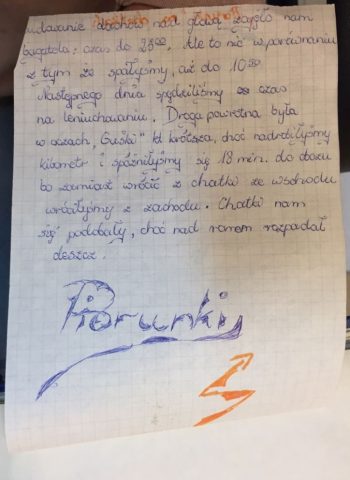 udawanie duchów nad głową zajęło nam
bagatela: czas do 23⁰⁰. Ale to nic w porównaniu
z tym że spałyśmy, aż do 10.³⁰
Następnego dnia spędziliśmy czas
na leniuchowaniu. Droga powrotna była
w oczach „Guśki" krótsza, choć nadrobiłyśmy
kilometr i spóźniłyśmy się 18 min. do obozu
bo zamiast wrócić z chatki ze wschodu
wróciłyśmy z zachodu. Chatki nam
się podobały, choć nad ranem rozpadał
deszcz.
Piorunki